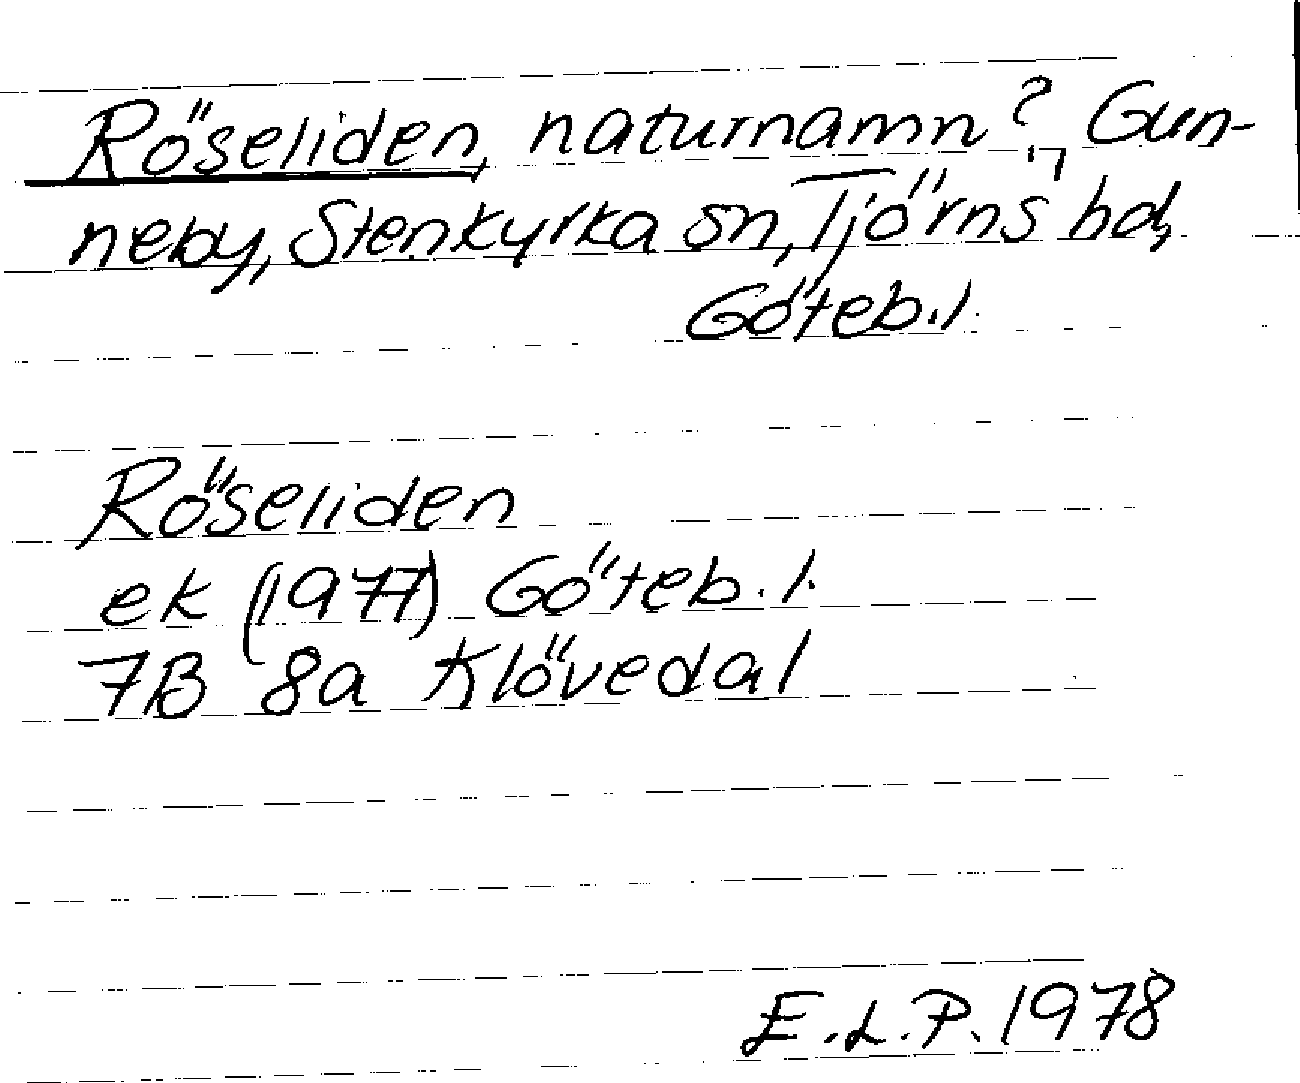 Röseliden, naturnamn?, Gun-
neby, Stenkyrka sn, Tjörns hd,
Göteb.l.
Röseliden
ek (1977) Göteb.l.
7B 8a Klövedal
E.L.P. 1978